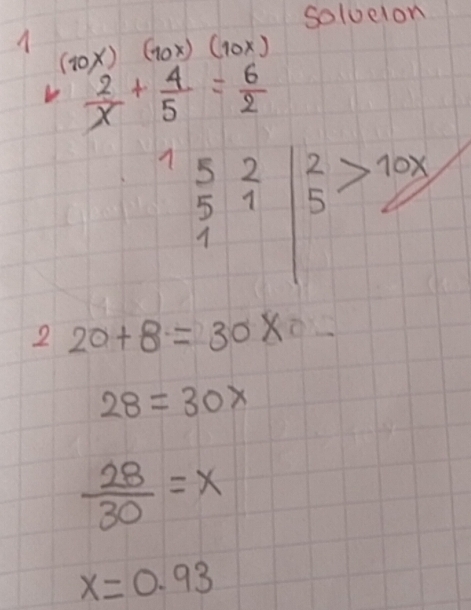 Solucion
1
(10x) (10x) (10x)
2/x + 4/5 = 6/2
1 5 2 | 2 > 10x
5 1 | 5
1
2 20+8=30x
28=30x
28/30 = x
x=0.93